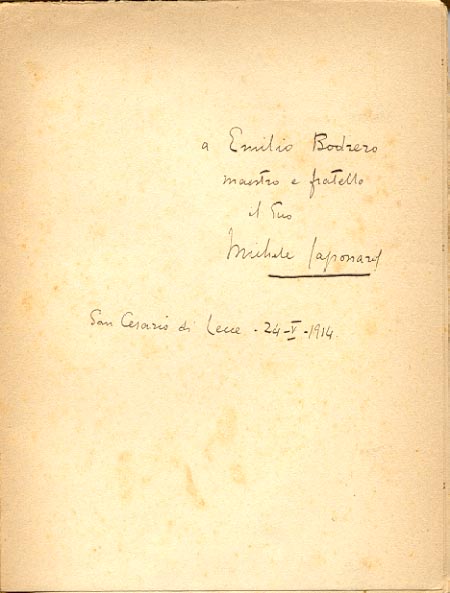 a Emilio Bodrero
maestro e fratello
il suo
Michele Saponaro
San Cesario di Lecce - 24-V-1914.